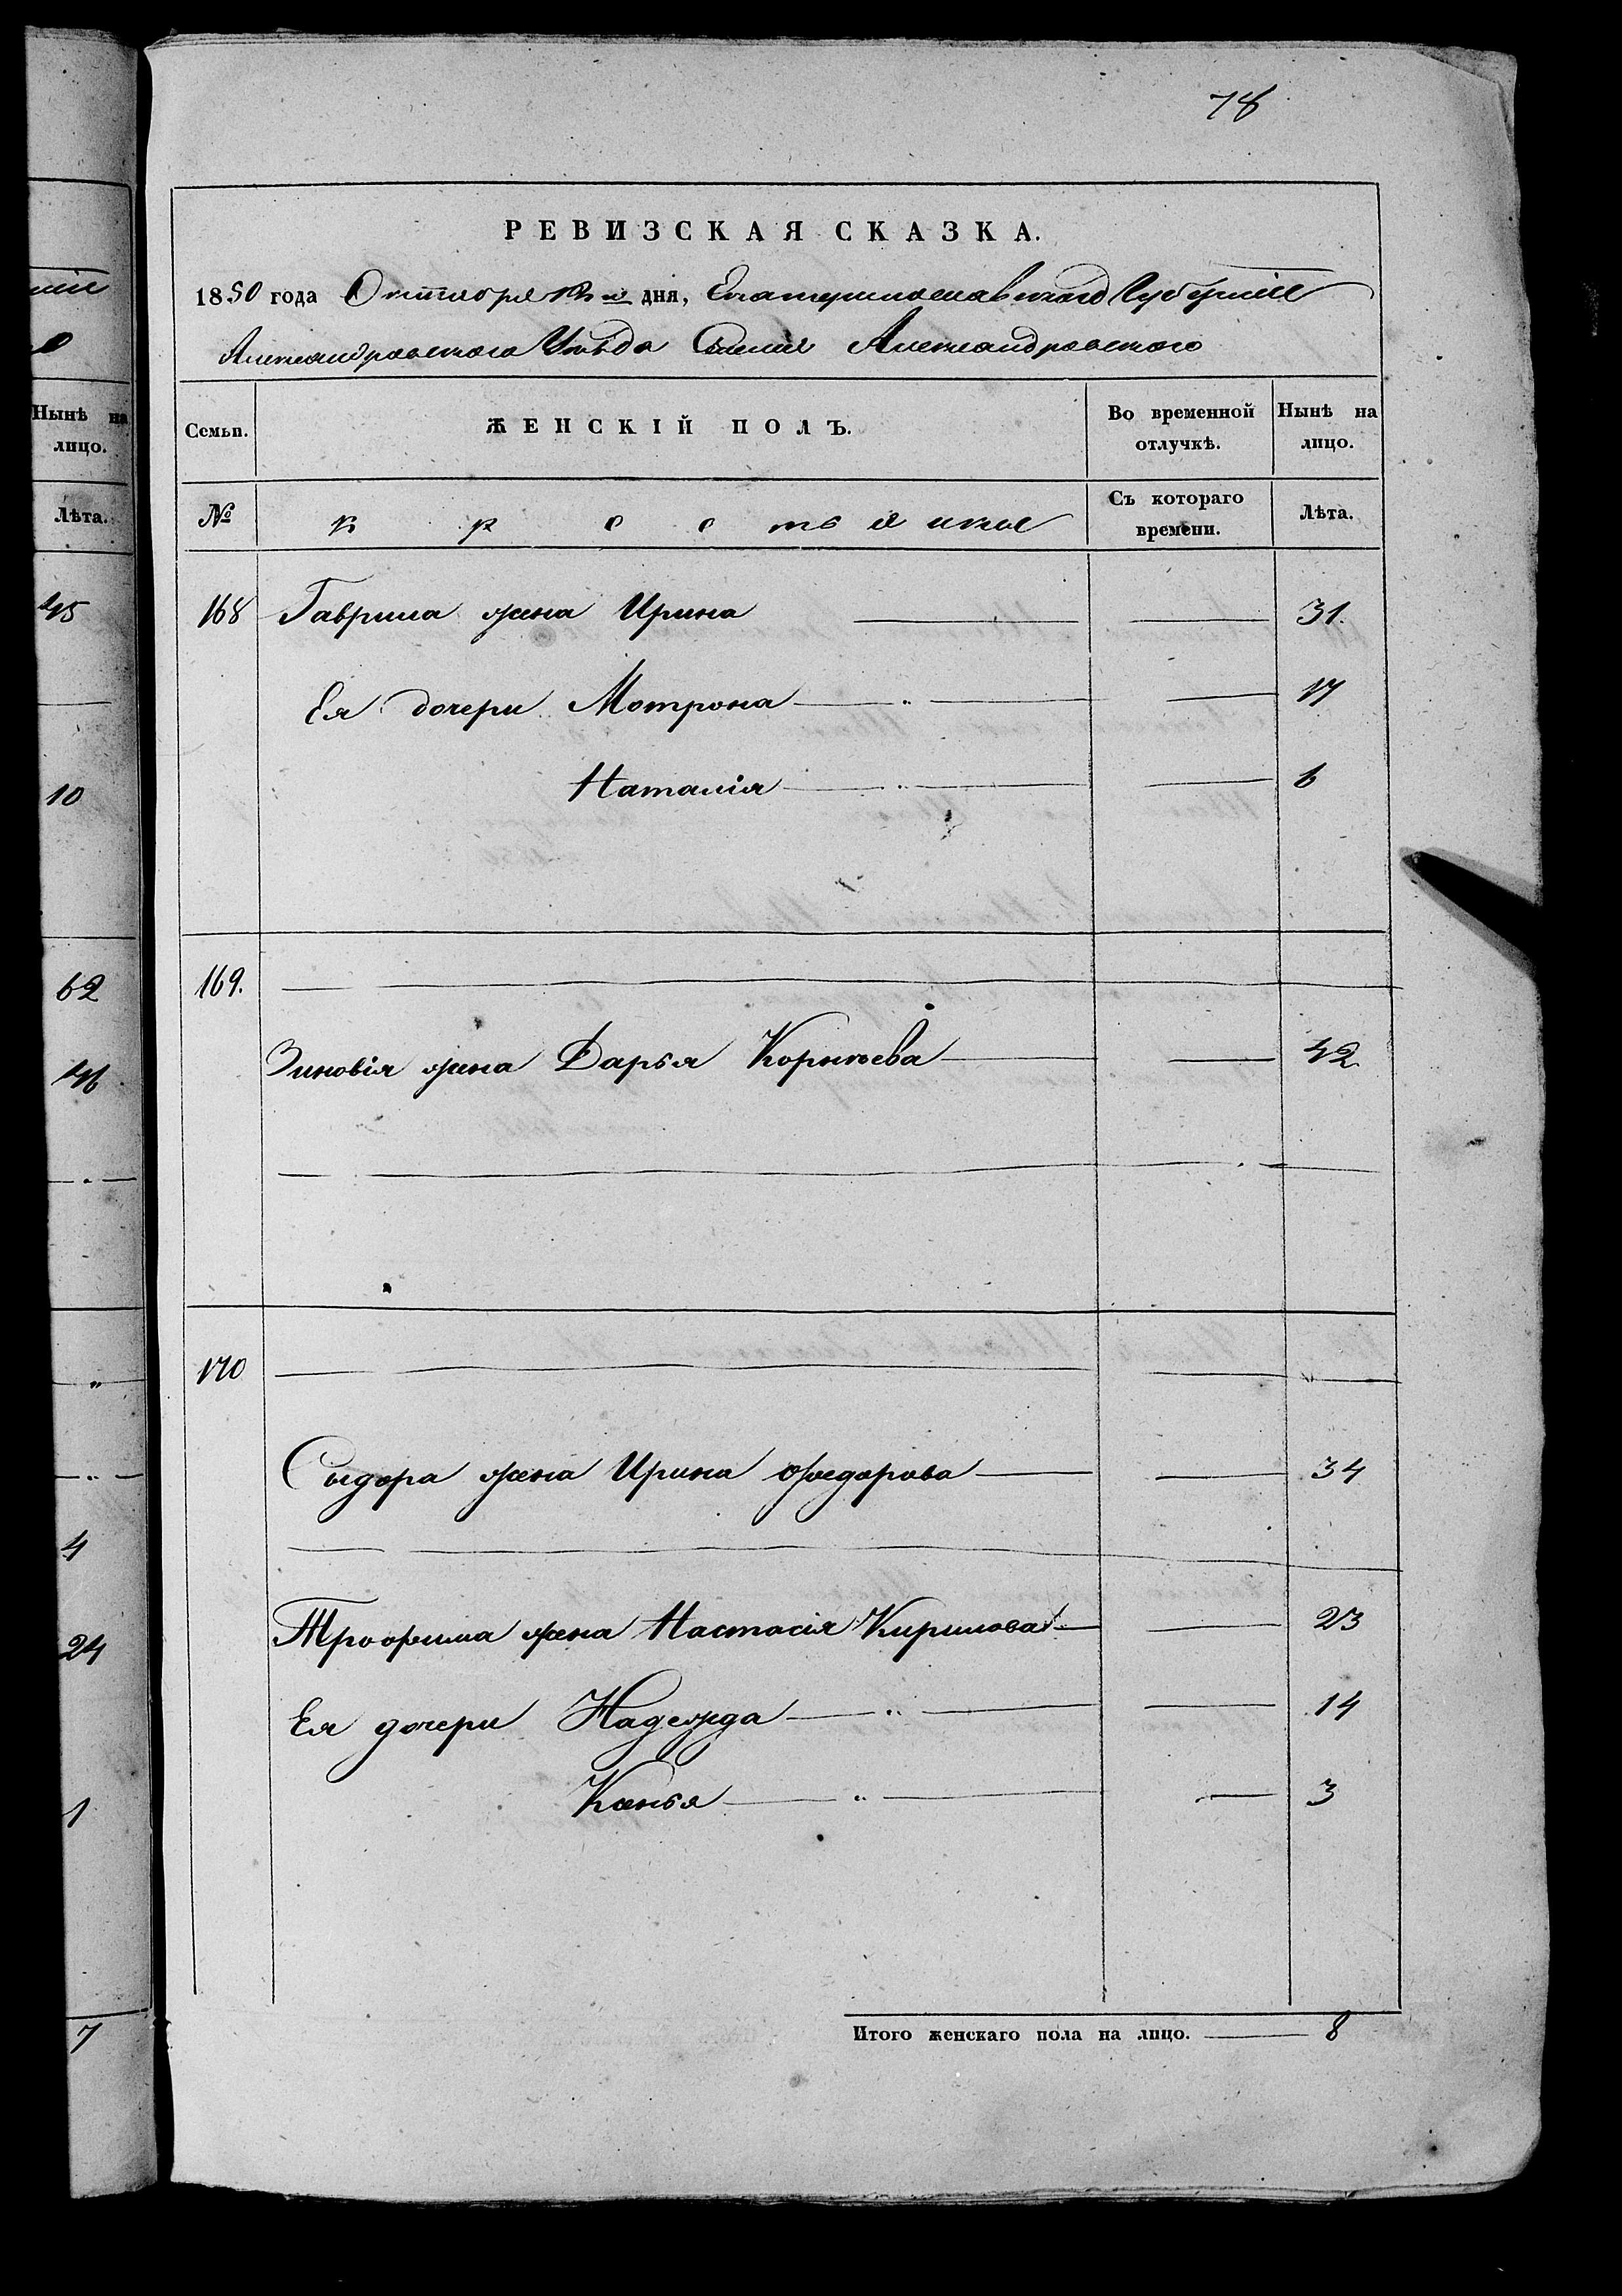 ніе
Нынѣ на
лицо.
Лѣта.
45
10
62
46
4
24
1
7
78
РЕВИЗСКАЯ СКАЗКА.
1850 года Октября 12го дня, Екатеринославской Губерніи
Александровскаго Уѣзда Селенія Александровскаго
Семьи. ЖЕНСКІЙ ПОЛЪ. Во временной отлучкѣ. Нынѣ на лицо.
№ крестьянки Съ котораго времени. Лѣта.
168 Гаврила жена Ирина 31.
Ея дочери Мотрона 17
Наталія 6
169.
Зиновія жена Дарья Корнѣева 42
170
Сидора жена Ирина Федорова 34
Трофима жена Настасія Кирилова 23
Ея дочери Надежда 14
Ксенья 3
Итого женскаго пола на лицо. 8